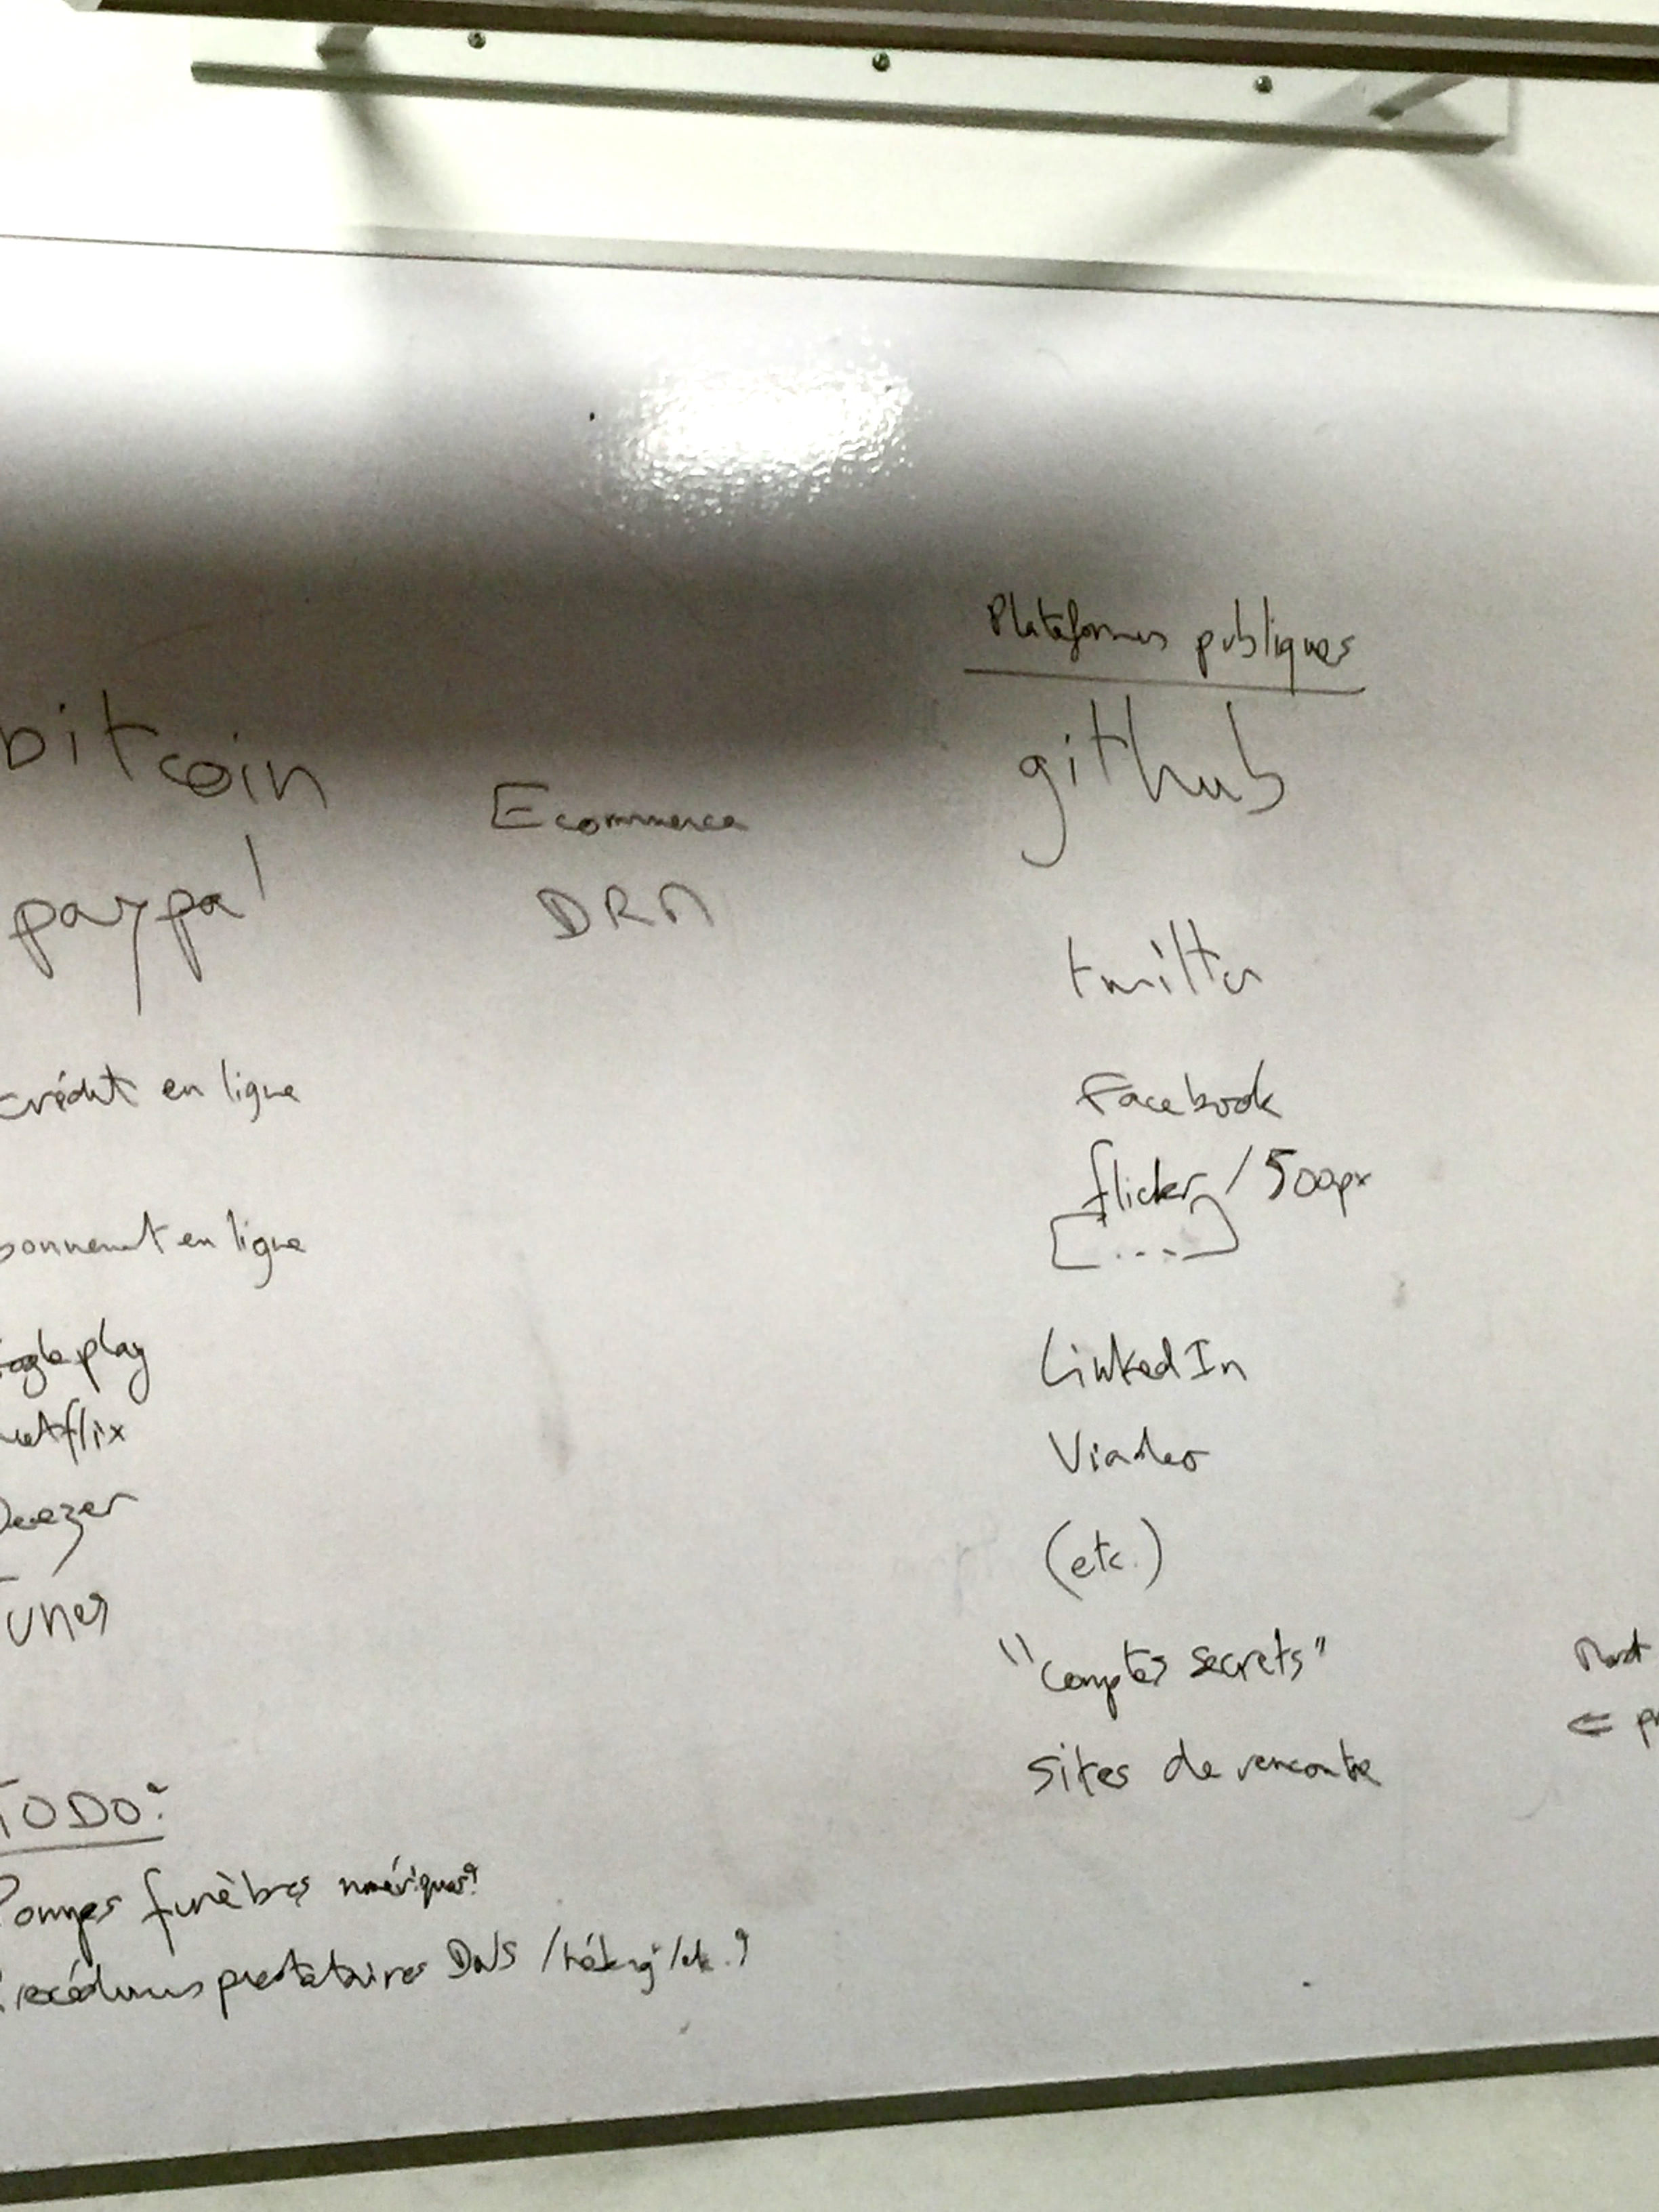 bitcoin
paypal
crédit en ligne
bonnement en ligne
oogle play
netflix
Deezer
Tunes
TODO:
Pompes funèbres numériques?
Procédures prestataires DNS /héberg°/etc.?
Ecommerce
DRM
Plateformes publiques
github
twitter
Facebook
flicker / 500px
[...]
LinkedIn
Viadeo
(etc.)
"Comptes secrets"
Sites de rencontre
⇐ pr